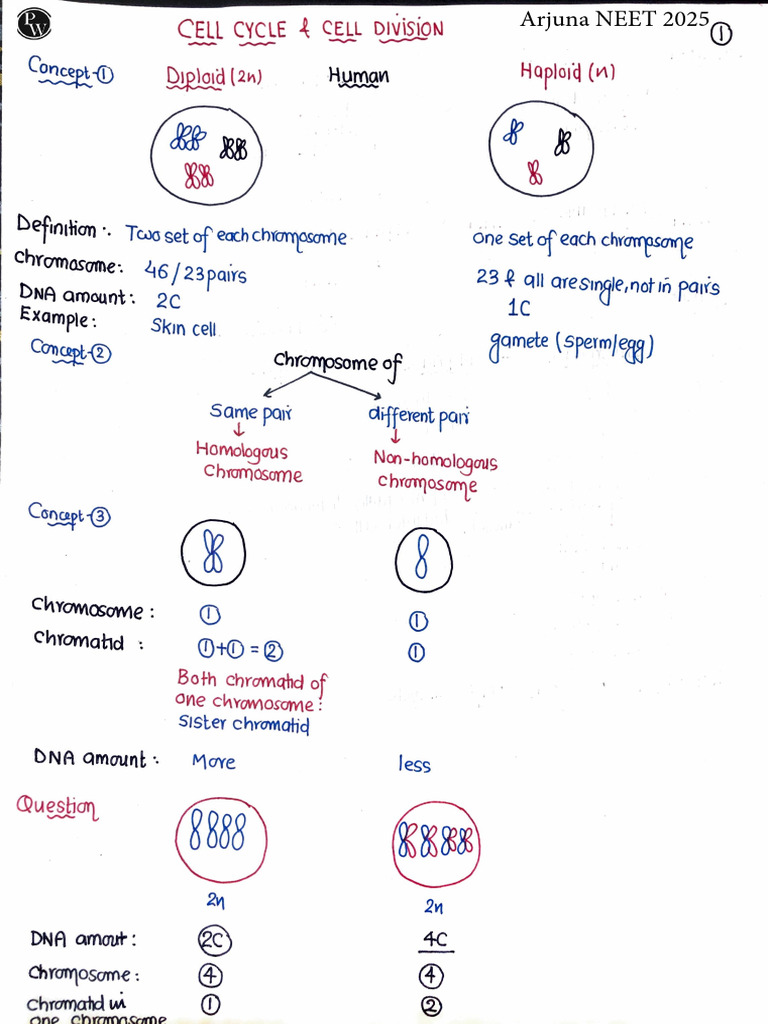 PW
Arjuna NEET 2025
①
CELL CYCLE & CELL DIVISION
Concept-①
Diploid (2n)
Human
Haploid (n)
Definition:
Two set of each chromosome
one set of each chromosome
chromosome:
46/23 pairs
23 & all are single, not in pairs
DNA amount:
2C
1C
Example:
Skin cell
gamete (sperm/egg)
Concept-②
Chromosome of
Same pair
different pair
Homologous
Chromosome
Non-homologous
chromosome
Concept-③
Chromosome:
①
①
Chromatid:
①+① = ②
①
Both chromatid of
one chromosome:
Sister chromatid
DNA amount:
More
less
Question
2n
2n
DNA amout:
2C
4C
Chromosome:
④
④
Chromatid in
①
②
one chromosome